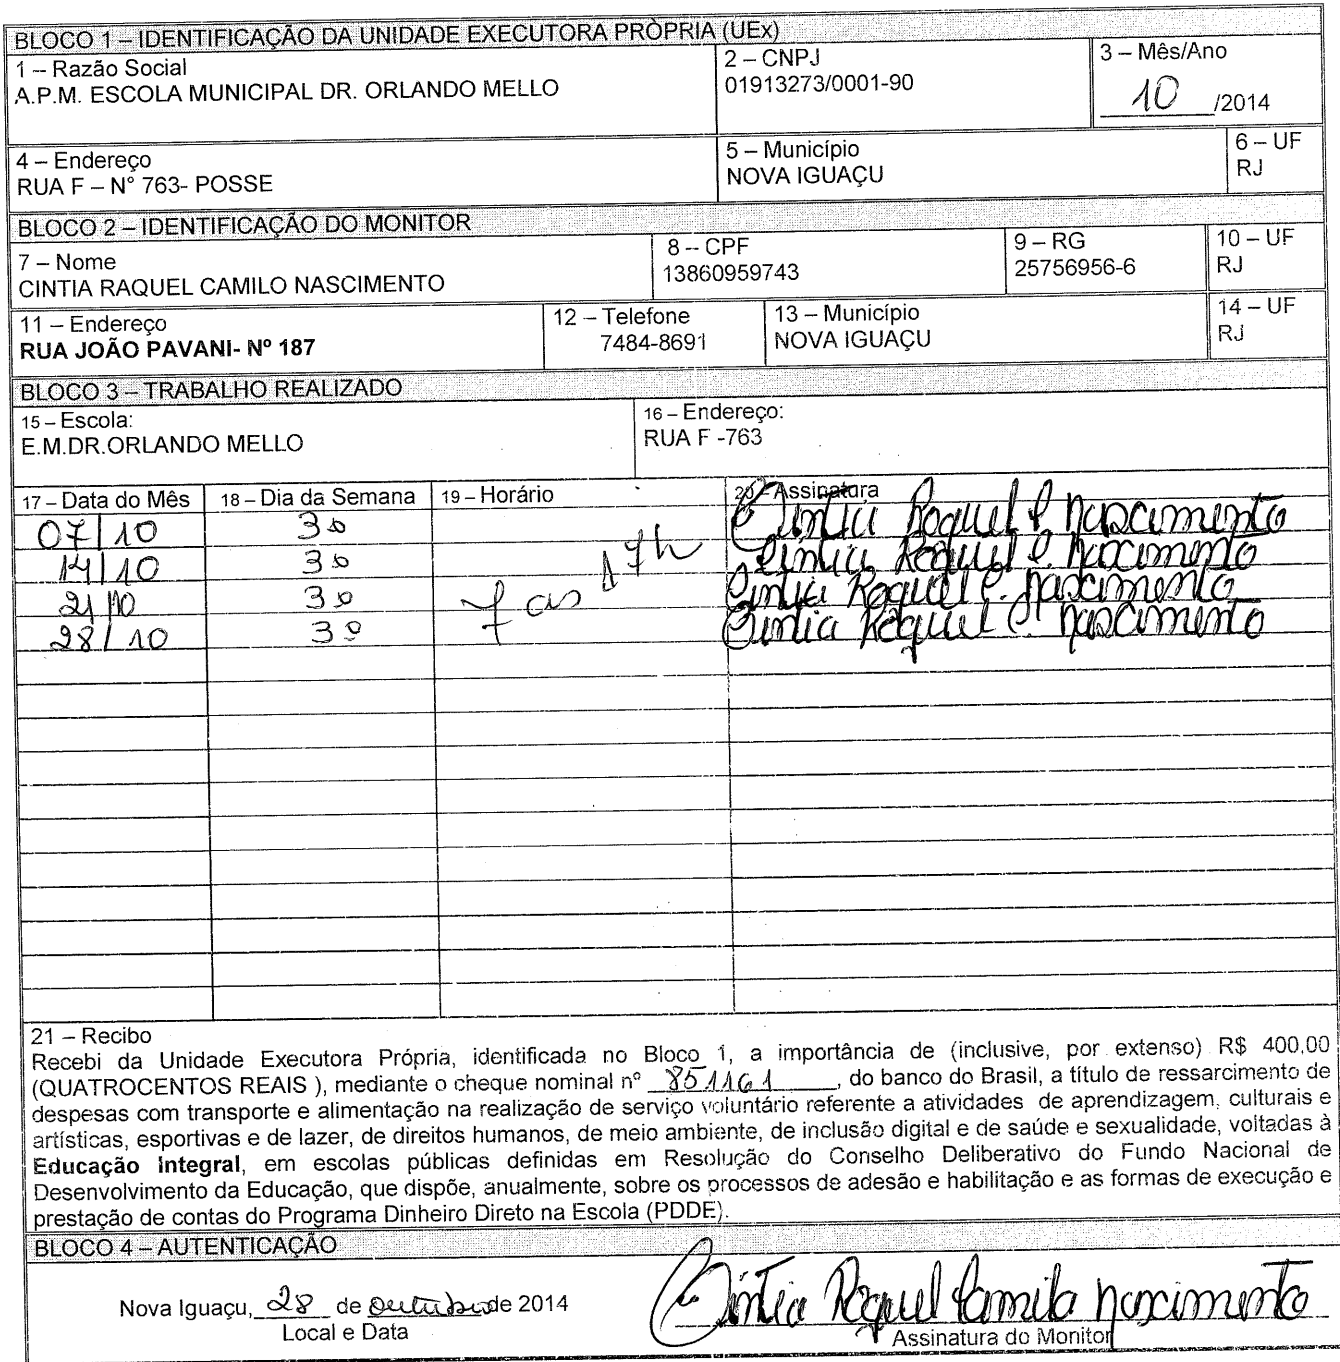 BLOCO 1 – IDENTIFICAÇÃO DA UNIDADE EXECUTORA PRÒPRIA (UEx)
1 – Razão Social
A.P.M. ESCOLA MUNICIPAL DR. ORLANDO MELLO
2 – CNPJ
01913273/0001-90
3 – Mês/Ano
10 /2014
4 – Endereço
RUA F – N° 763- POSSE
5 – Município
NOVA IGUAÇU
6 – UF
RJ
BLOCO 2 – IDENTIFICAÇÃO DO MONITOR
7 – Nome
CINTIA RAQUEL CAMILO NASCIMENTO
8 – CPF
13860959743
9 – RG
25756956-6
10 – UF
RJ
11 – Endereço
RUA JOÃO PAVANI- Nº 187
12 – Telefone
7484-8691
13 – Município
NOVA IGUAÇU
14 – UF
RJ
BLOCO 3 – TRABALHO REALIZADO
15 – Escola:
E.M.DR.ORLANDO MELLO
16 – Endereço:
RUA F -763
17 – Data do Mês 18 – Dia da Semana 19 – Horário 20 – Assinatura
07/10 3ª Cintia Raquel C. Nascimento
14/10 3ª Cintia Raquel C. Nascimento
21/10 3ª 7 as 17h Cintia Raquel C. Nascimento
28/10 3ª Cintia Raquel C. Nascimento
21 – Recibo
Recebi da Unidade Executora Própria, identificada no Bloco 1, a importância de (inclusive, por extenso) R$ 400,00
(QUATROCENTOS REAIS ), mediante o cheque nominal nº 851161, do banco do Brasil, a título de ressarcimento de
despesas com transporte e alimentação na realização de serviço voluntário referente a atividades de aprendizagem, culturais e
artísticas, esportivas e de lazer, de direitos humanos, de meio ambiente, de inclusão digital e de saúde e sexualidade, voltadas à
Educação Integral, em escolas públicas definidas em Resolução do Conselho Deliberativo do Fundo Nacional de
Desenvolvimento da Educação, que dispõe, anualmente, sobre os processos de adesão e habilitação e as formas de execução e
prestação de contas do Programa Dinheiro Direto na Escola (PDDE).
BLOCO 4 – AUTENTICAÇÃO
Nova Iguaçu, 28 de outubro de 2014
Local e Data
Cintia Raquel Camilo Nascimento
Assinatura do Monitor